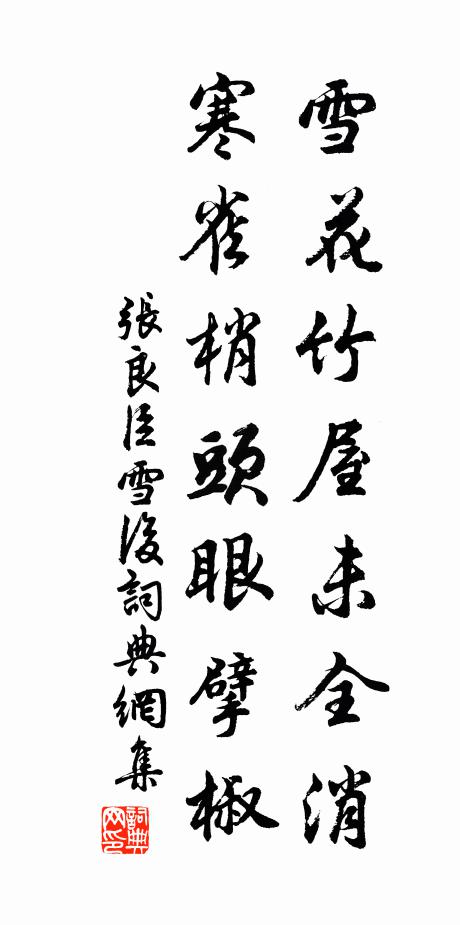 雪花竹屋未全消
寒雀梢頭眼擘椒
張良臣雪後詞典網集
詞典網印